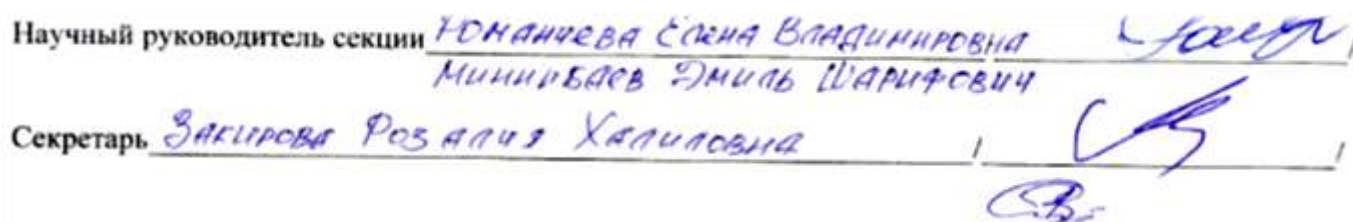 Научный руководитель секции Юманчева Елена Владимировна /
Минирбаев Эмиль Шарифович
Секретарь Закирова Розалия Халиловна / /